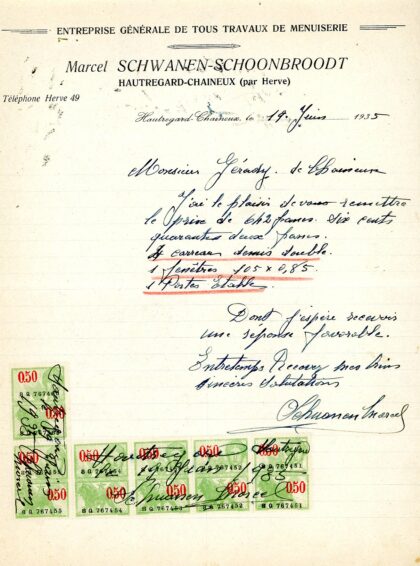 ENTREPRISE GÉNÉRALE DE TOUS TRAVAUX DE MENUISERIE
Marcel SCHWANEN-SCHOONBROODT
HAUTREGARD-CHAINEUX (par Herve)
Téléphone Herve 49
Hautregard-Chaineux, le 14 Juin 1935
Monsieur Gérady. de Chaineux
J'ai le plaisir de vous remettre
le prix de 642 francs. six cents
quarantes deux francs.
carreau demis double.
1 fenêtres 105 x 0,85.
1 Portes Etable.
Dont j'espère recevoir
une réponse favorable.
Entretemps Recevez mes
sincères salutations
Schwanen Marcel
0.50
8Q 7674
0.50
8Q 767455
0.50 0.50 0.50 0.50
Hautregard
767452 767451
1935
Schwanen Marcel
0.50 0.50 0.50 0.50
8Q 767454 8Q 767453 8Q 767452 8Q 767451